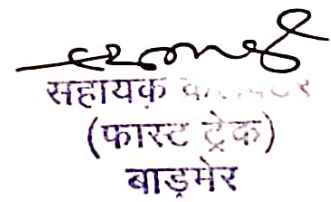 सहायक
(फास्ट ट्रेक)
बाड़मेर